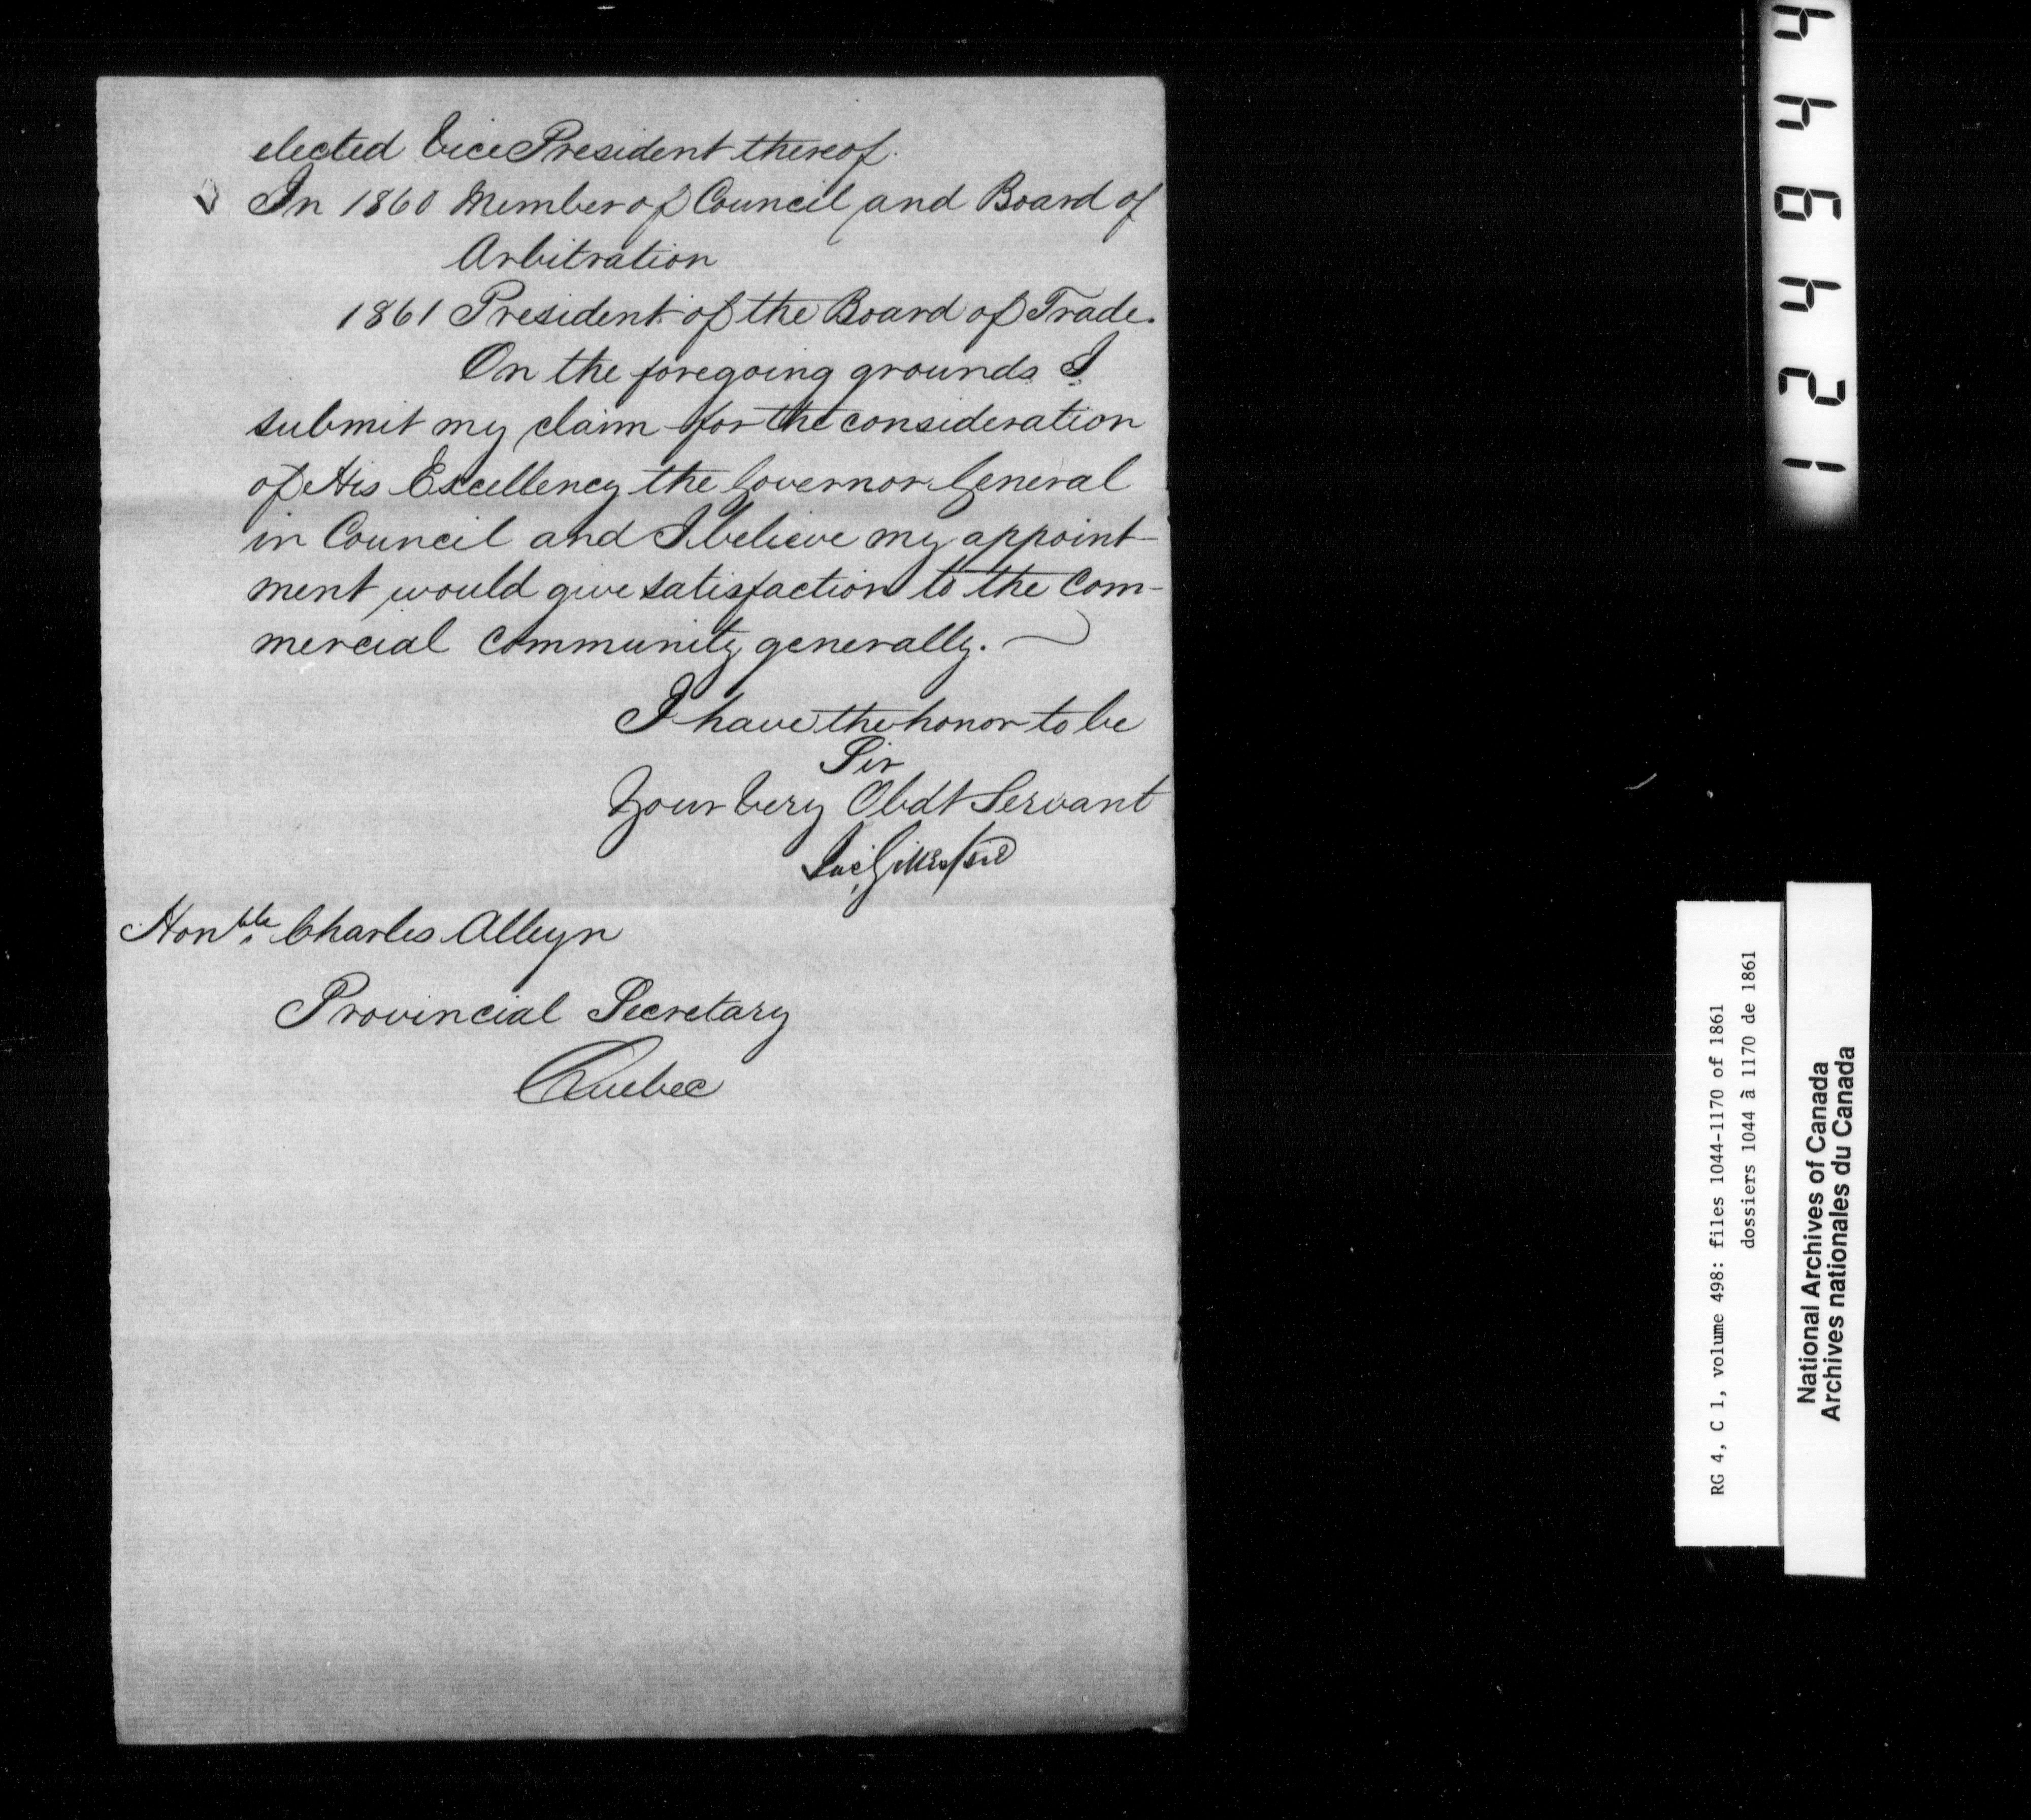 elected Vice President thereof.
In 1860 Member of Council and Board of
Arbitration
1861 President of the Board of Trade.
On the foregoing grounds I
submit my claim for the consideration
of His Excellency the Governor General
in Council and I believe my appoint-
ment would give satisfaction to the Com-
mercial Community generally.
I have the honor to be
Sir
Your Very Obdt Servant
Hon'ble Charles Alleyn
Provincial Secretary
Quebec
124644
RG 4, C 1, volume 498: files 1044-1170 of 1861
dossiers 1044 à 1170 de 1861
National Archives of Canada
Archives nationales du Canada